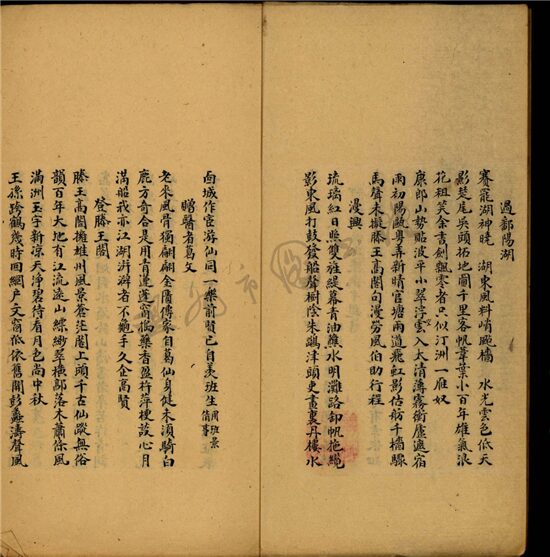 過鄱陽湖
賽罷湖神曉 湖東風料峭颭檣 水光雲色低天
影楚尾吳頭拓地圖千里客帆葦葉小百年雄氣浪
花粗笑余書劍飄零者只似汀洲一雁奴
康郎山勢貼波平小翠浮雲入太清薄霧衝虛過宿
雨初陽 弄新晴官塘兩道飛虹影估舫千檣驟
馬聲未擬滕王高閣句漫勞風伯助行程
漫興
琉璃紅日照雙旌緩幕青油蘸水明灘路卸帆拖纜
影東風打鼓發船聲樹陰朱鷁津頭吏畫裏丹樓水
面城作宦游仙同一樂前賢已自羨班生 用班景倩事
贈醫者葛文
老來風骨獨翩翩金匱傳家自葛仙身健未須騎白
鹿方奇合是用青蓮蓬窗偶藥香盈杵萍梗設心月
滿船我亦江湖洴澼者不龜手久企高賢
登滕王閣
滕王高閣擅雄州風景蒼茫閣上頭千古仙蹤無俗
韻百年大地有江流遙山縹緲翠橫郭落木蕭條風
滿洲玉宇新涼天淨碧待看月色尚中秋
王孫跨鶴幾時回網戶文窗低依舊開彭蠡濤聲風